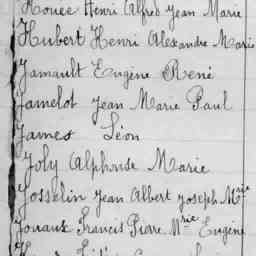 Houee Henri Alfred Jean Marie
Hubert Henri Alexandre Marie
Jamault Eugène René
Jamelot Jean Marie Paul
James Léon
Joly Alphonse Marie
Josselin Jean Albert Joseph Mrie
Jouaux Francis Pierre Mrie Eugène